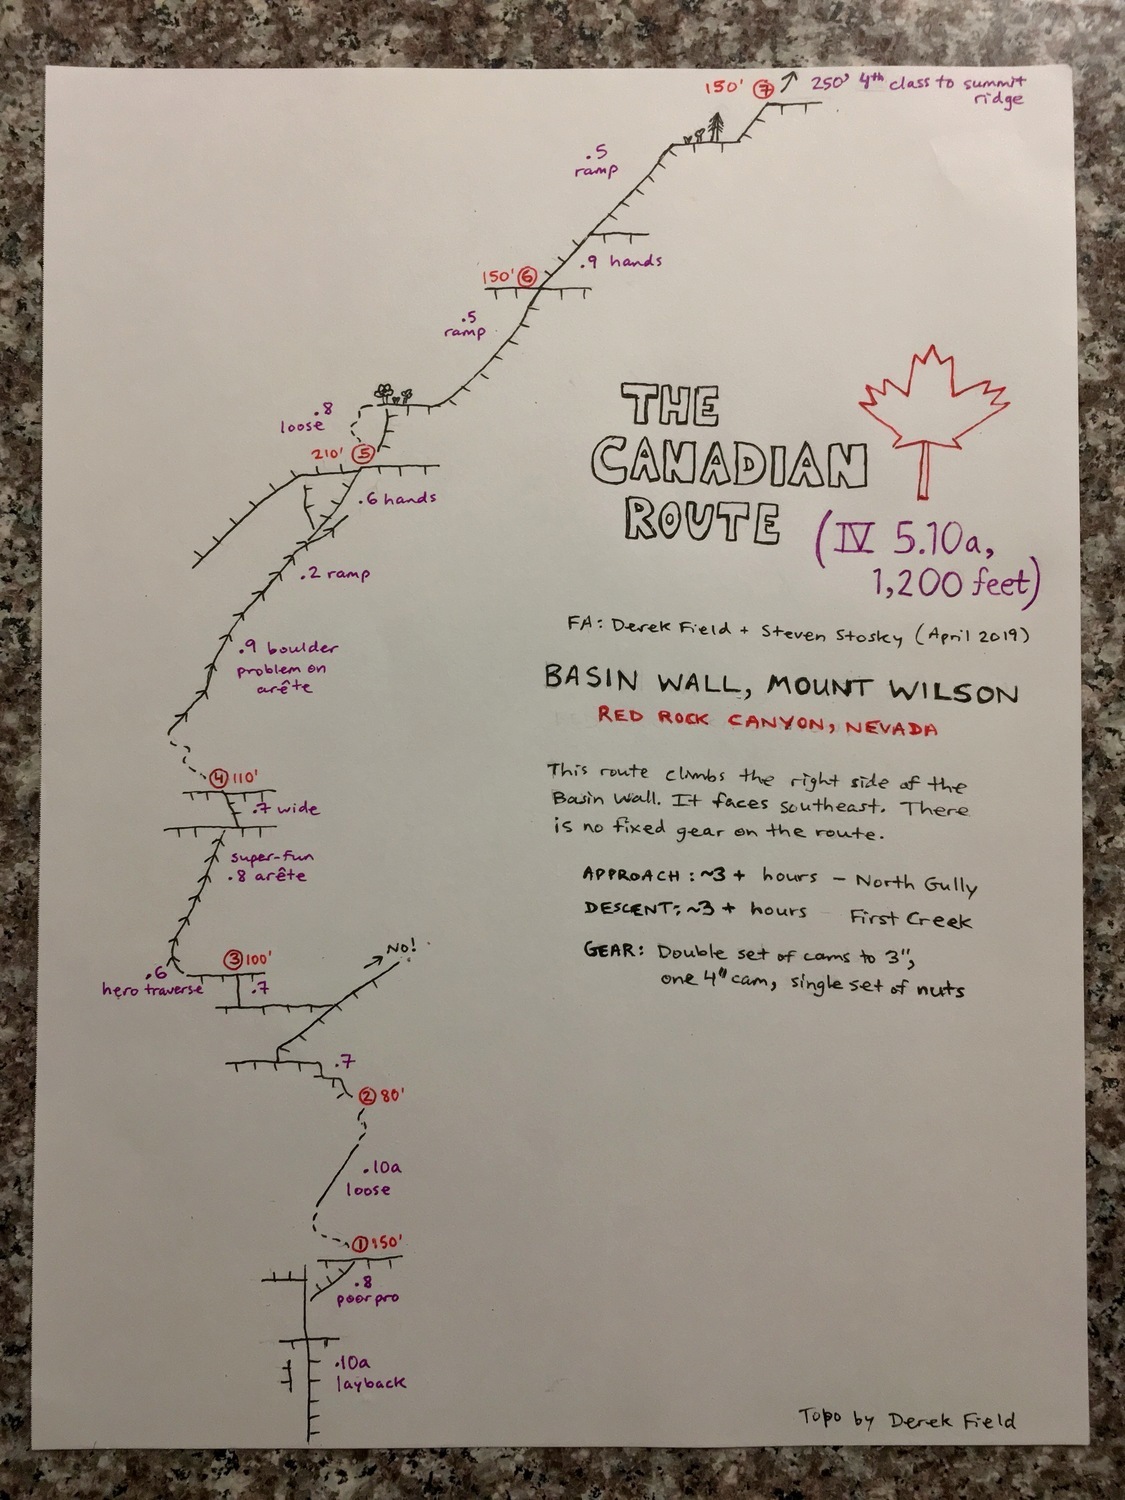 150' 7 250' 4th class to summit
ridge
.5
ramp
.9 hands
150' 6
.5
ramp
.8
loose
210' 5
.6 hands
.2 ramp
.9 boulder
problem on
arête
4 110'
.7 wide
super-fun
.8 arête
NO!
3 100'
.6
hero traverse
.7
.7
2 80'
.10a
loose
1 150'
.8
poor pro
.10a
layback
THE
CANADIAN
ROUTE
(IV 5.10a,
1,200 feet)
FA: Derek Field + Steven Stosky (April 2019)
BASIN WALL, MOUNT WILSON
RED ROCK CANYON, NEVADA
This route climbs the right side of the
Basin Wall. It faces southeast. There
is no fixed gear on the route.
APPROACH: ~3+ hours – North Gully
DESCENT: ~3+ hours First Creek
GEAR: Double set of cams to 3",
one 4" cam, single set of nuts
Topo by Derek Field